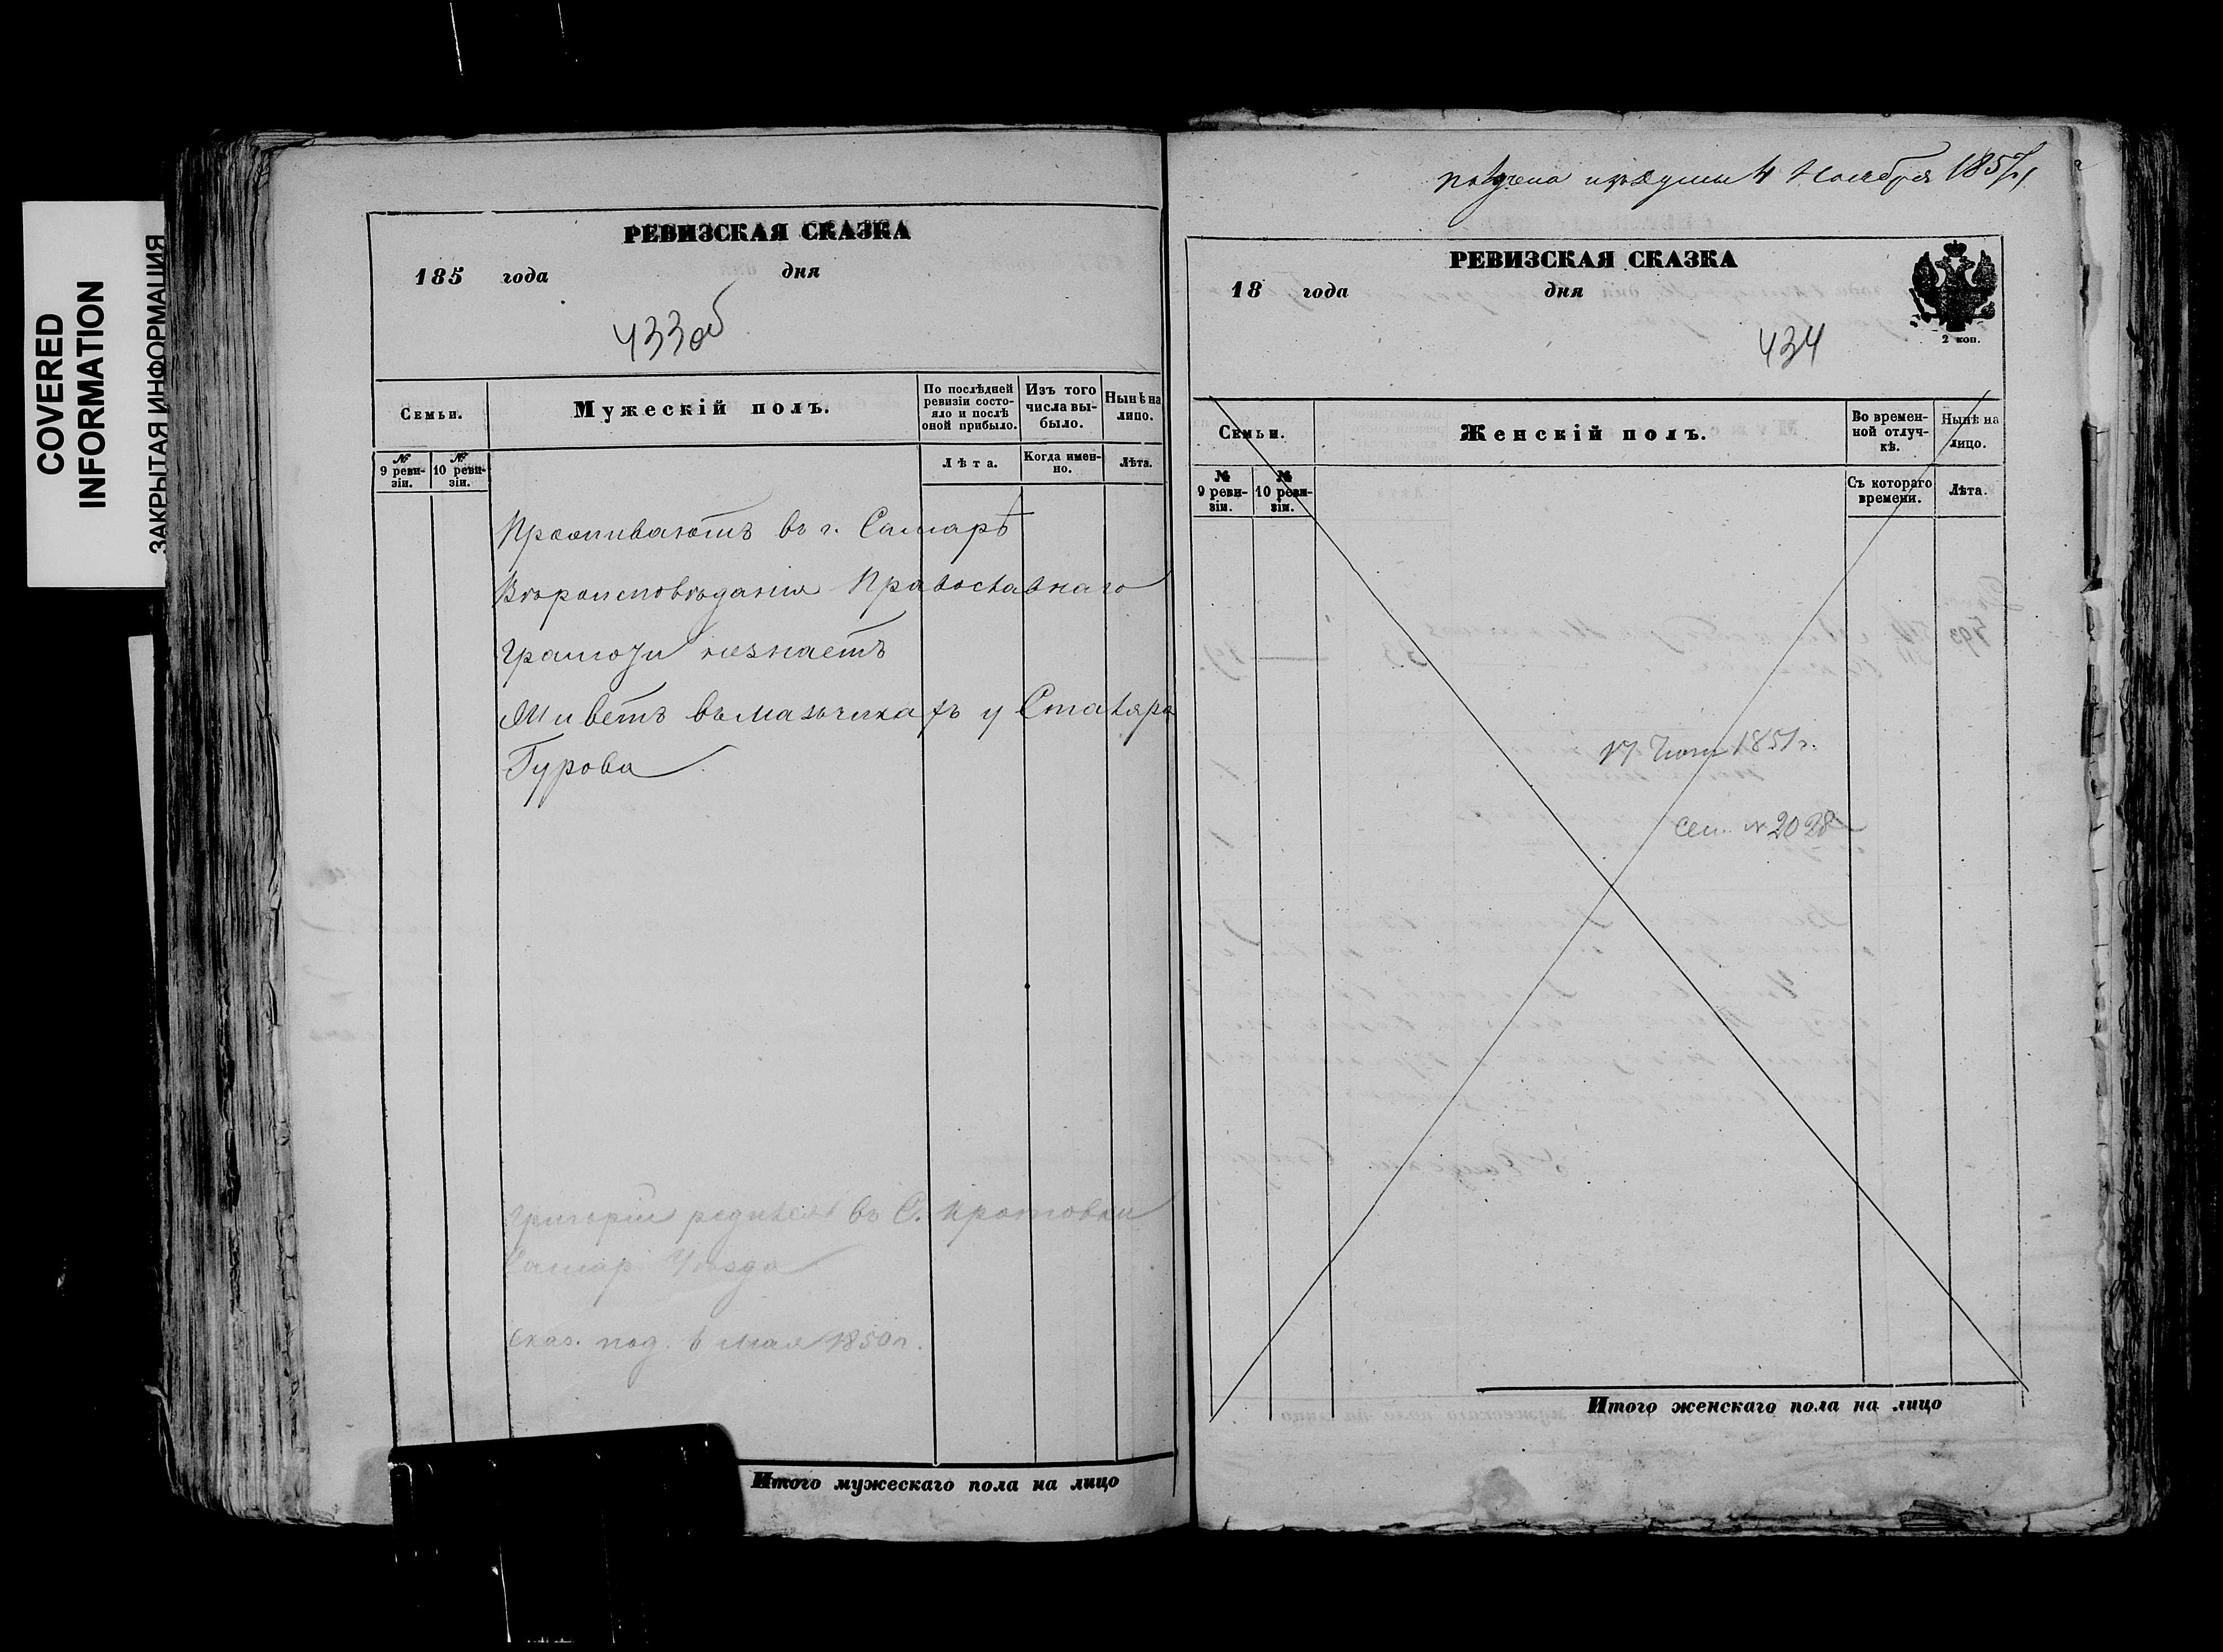 COVERED
INFORMATION
ЗАКРЫТАЯ ИНФОРМАЦИЯ
РЕВИЗСКАЯ СКАЗКА
185 года дня
433об
Семьи.
Мужескій полъ.
По послѣдней ревизіи состояло и послѣ оной прибыло.
Изъ того числа выбыло.
Нынѣ на лицо.
№ 9 ревизіи.
№ 10 ревизіи.
Лѣта.
Когда именно.
Лѣта.
Проживаютъ въ г. Самарѣ
Вѣроисповѣданія Православнаго
Грамоты незнаетъ
Живетъ вмальчикахъ у Столяра
Гурова
Григорій въ С. Кротовки
Самар Уѣзда
сказ. под. 6 мая 1850 г.
Итого мужескаго пола на лицо
получена из думы 4 Ноября 1857
РЕВИЗСКАЯ СКАЗКА
18 года дня
2 коп.
434
Семьи.
Женскій полъ.
Во временной отлучкѣ.
Нынѣ на лицо.
№ 9 ревизіи.
№ 10 ревизіи.
Съ котораго времени.
Лѣта.
17 1851 г.
сем. № 2028
Итого женскаго пола на лицо